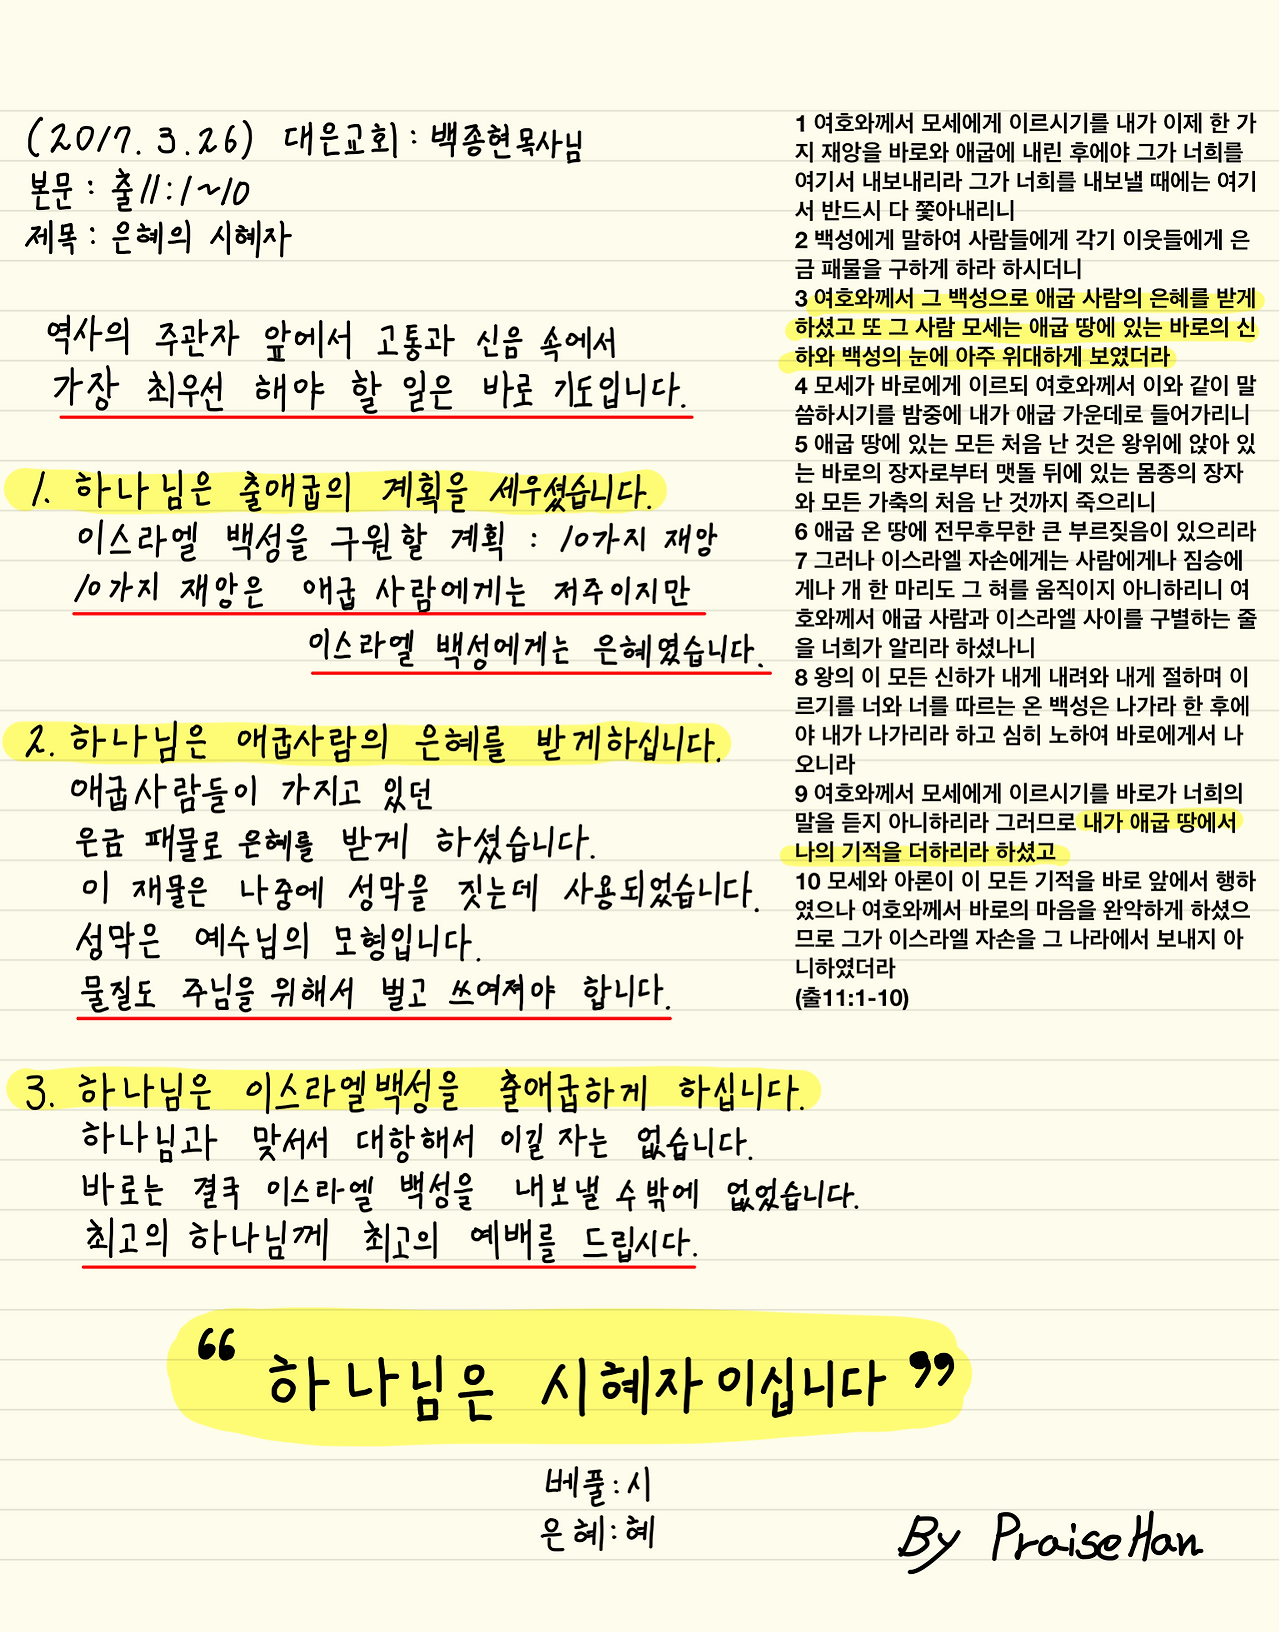 (2017. 3. 26) 대은교회 : 백종현목사님
본문 : 출11:1~10
제목 : 은혜의 시혜자
역사의 주관자 앞에서 고통과 신음 속에서
가장 최우선 해야 할 일은 바로 기도입니다.
1. 하나님은 출애굽의 계획을 세우셨습니다.
이스라엘 백성을 구원할 계획 : 10가지 재앙
10가지 재앙은 애굽 사람에게는 저주이지만
이스라엘 백성에게는 은혜였습니다.
2. 하나님은 애굽사람의 은혜를 받게하십니다.
애굽사람들이 가지고 있던
은금 패물로 은혜를 받게 하셨습니다.
이 재물은 나중에 성막을 짓는데 사용되었습니다.
성막은 예수님의 모형입니다.
물질도 주님을 위해서 벌고 쓰여져야 합니다.
3. 하나님은 이스라엘백성을 출애굽하게 하십니다.
하나님과 맞서서 대항해서 이길 자는 없습니다.
바로는 결국 이스라엘 백성을 내보낼 수밖에 없었습니다.
최고의 하나님께 최고의 예배를 드립시다.
“ 하나님은 시혜자이십니다 ”
베풀 : 시
은혜 : 혜
By PraiseHan
1 여호와께서 모세에게 이르시기를 내가 이제 한 가
지 재앙을 바로와 애굽에 내린 후에야 그가 너희를
여기서 내보내리라 그가 너희를 내보낼 때에는 여기
서 반드시 다 쫓아내리니
2 백성에게 말하여 사람들에게 각기 이웃들에게 은
금 패물을 구하게 하라 하시더니
3 여호와께서 그 백성으로 애굽 사람의 은혜를 받게
하셨고 또 그 사람 모세는 애굽 땅에 있는 바로의 신
하와 백성의 눈에 아주 위대하게 보였더라
4 모세가 바로에게 이르되 여호와께서 이와 같이 말
씀하시기를 밤중에 내가 애굽 가운데로 들어가리니
5 애굽 땅에 있는 모든 처음 난 것은 왕위에 앉아 있
는 바로의 장자로부터 맷돌 뒤에 있는 몸종의 장자
와 모든 가축의 처음 난 것까지 죽으리니
6 애굽 온 땅에 전무후무한 큰 부르짖음이 있으리라
7 그러나 이스라엘 자손에게는 사람에게나 짐승에
게나 개 한 마리도 그 혀를 움직이지 아니하리니 여
호와께서 애굽 사람과 이스라엘 사이를 구별하는 줄
을 너희가 알리라 하셨나니
8 왕의 이 모든 신하가 내게 내려와 내게 절하며 이
르기를 너와 너를 따르는 온 백성은 나가라 한 후에
야 내가 나가리라 하고 심히 노하여 바로에게서 나
오니라
9 여호와께서 모세에게 이르시기를 바로가 너희의
말을 듣지 아니하리라 그러므로 내가 애굽 땅에서
나의 기적을 더하리라 하셨고
10 모세와 아론이 이 모든 기적을 바로 앞에서 행하
였으나 여호와께서 바로의 마음을 완악하게 하셨으
므로 그가 이스라엘 자손을 그 나라에서 보내지 아
니하였더라
(출11:1-10)